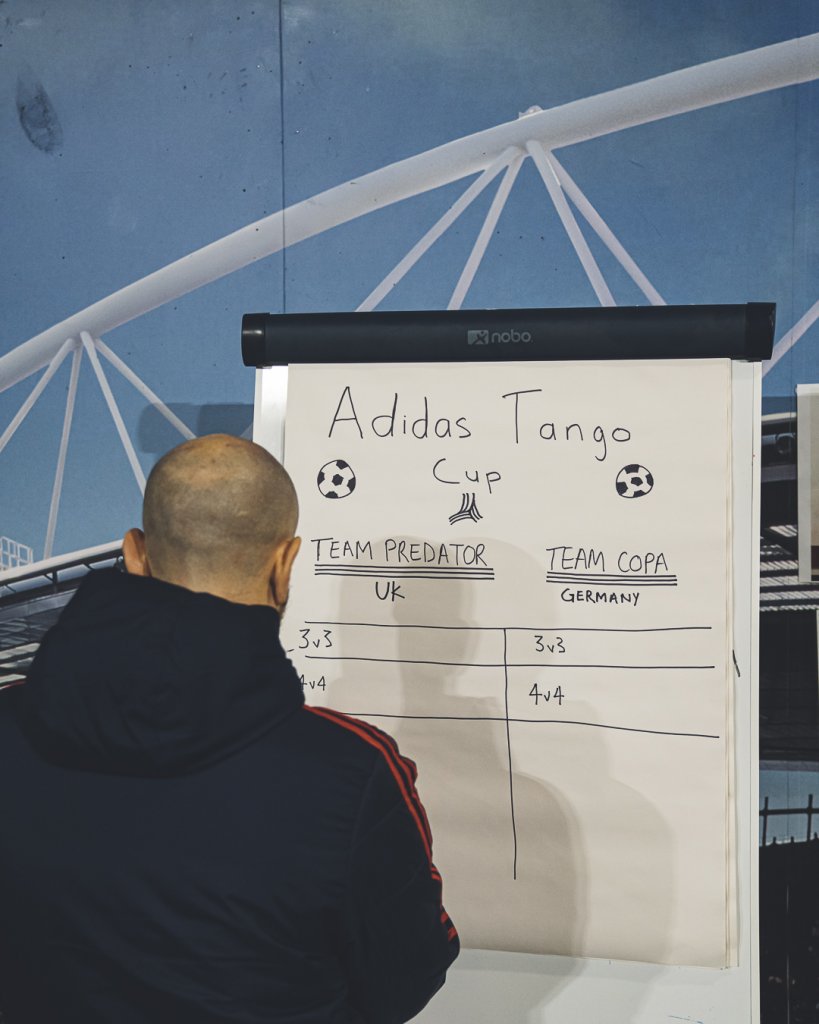 nobo
Adidas Tango
Cup
TEAM PREDATOR
UK
TEAM COPA
GERMANY
3v3
3v3
4v4
4v4